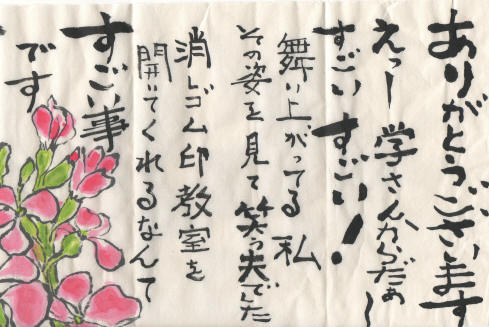 ありがとうございます
えっー 学さんからだぁ〜
すごい すごい!
舞い上がってる 私
その姿を見て笑う夫でした
消しゴム印教室を
開いてくれるなんて
すごい事
です